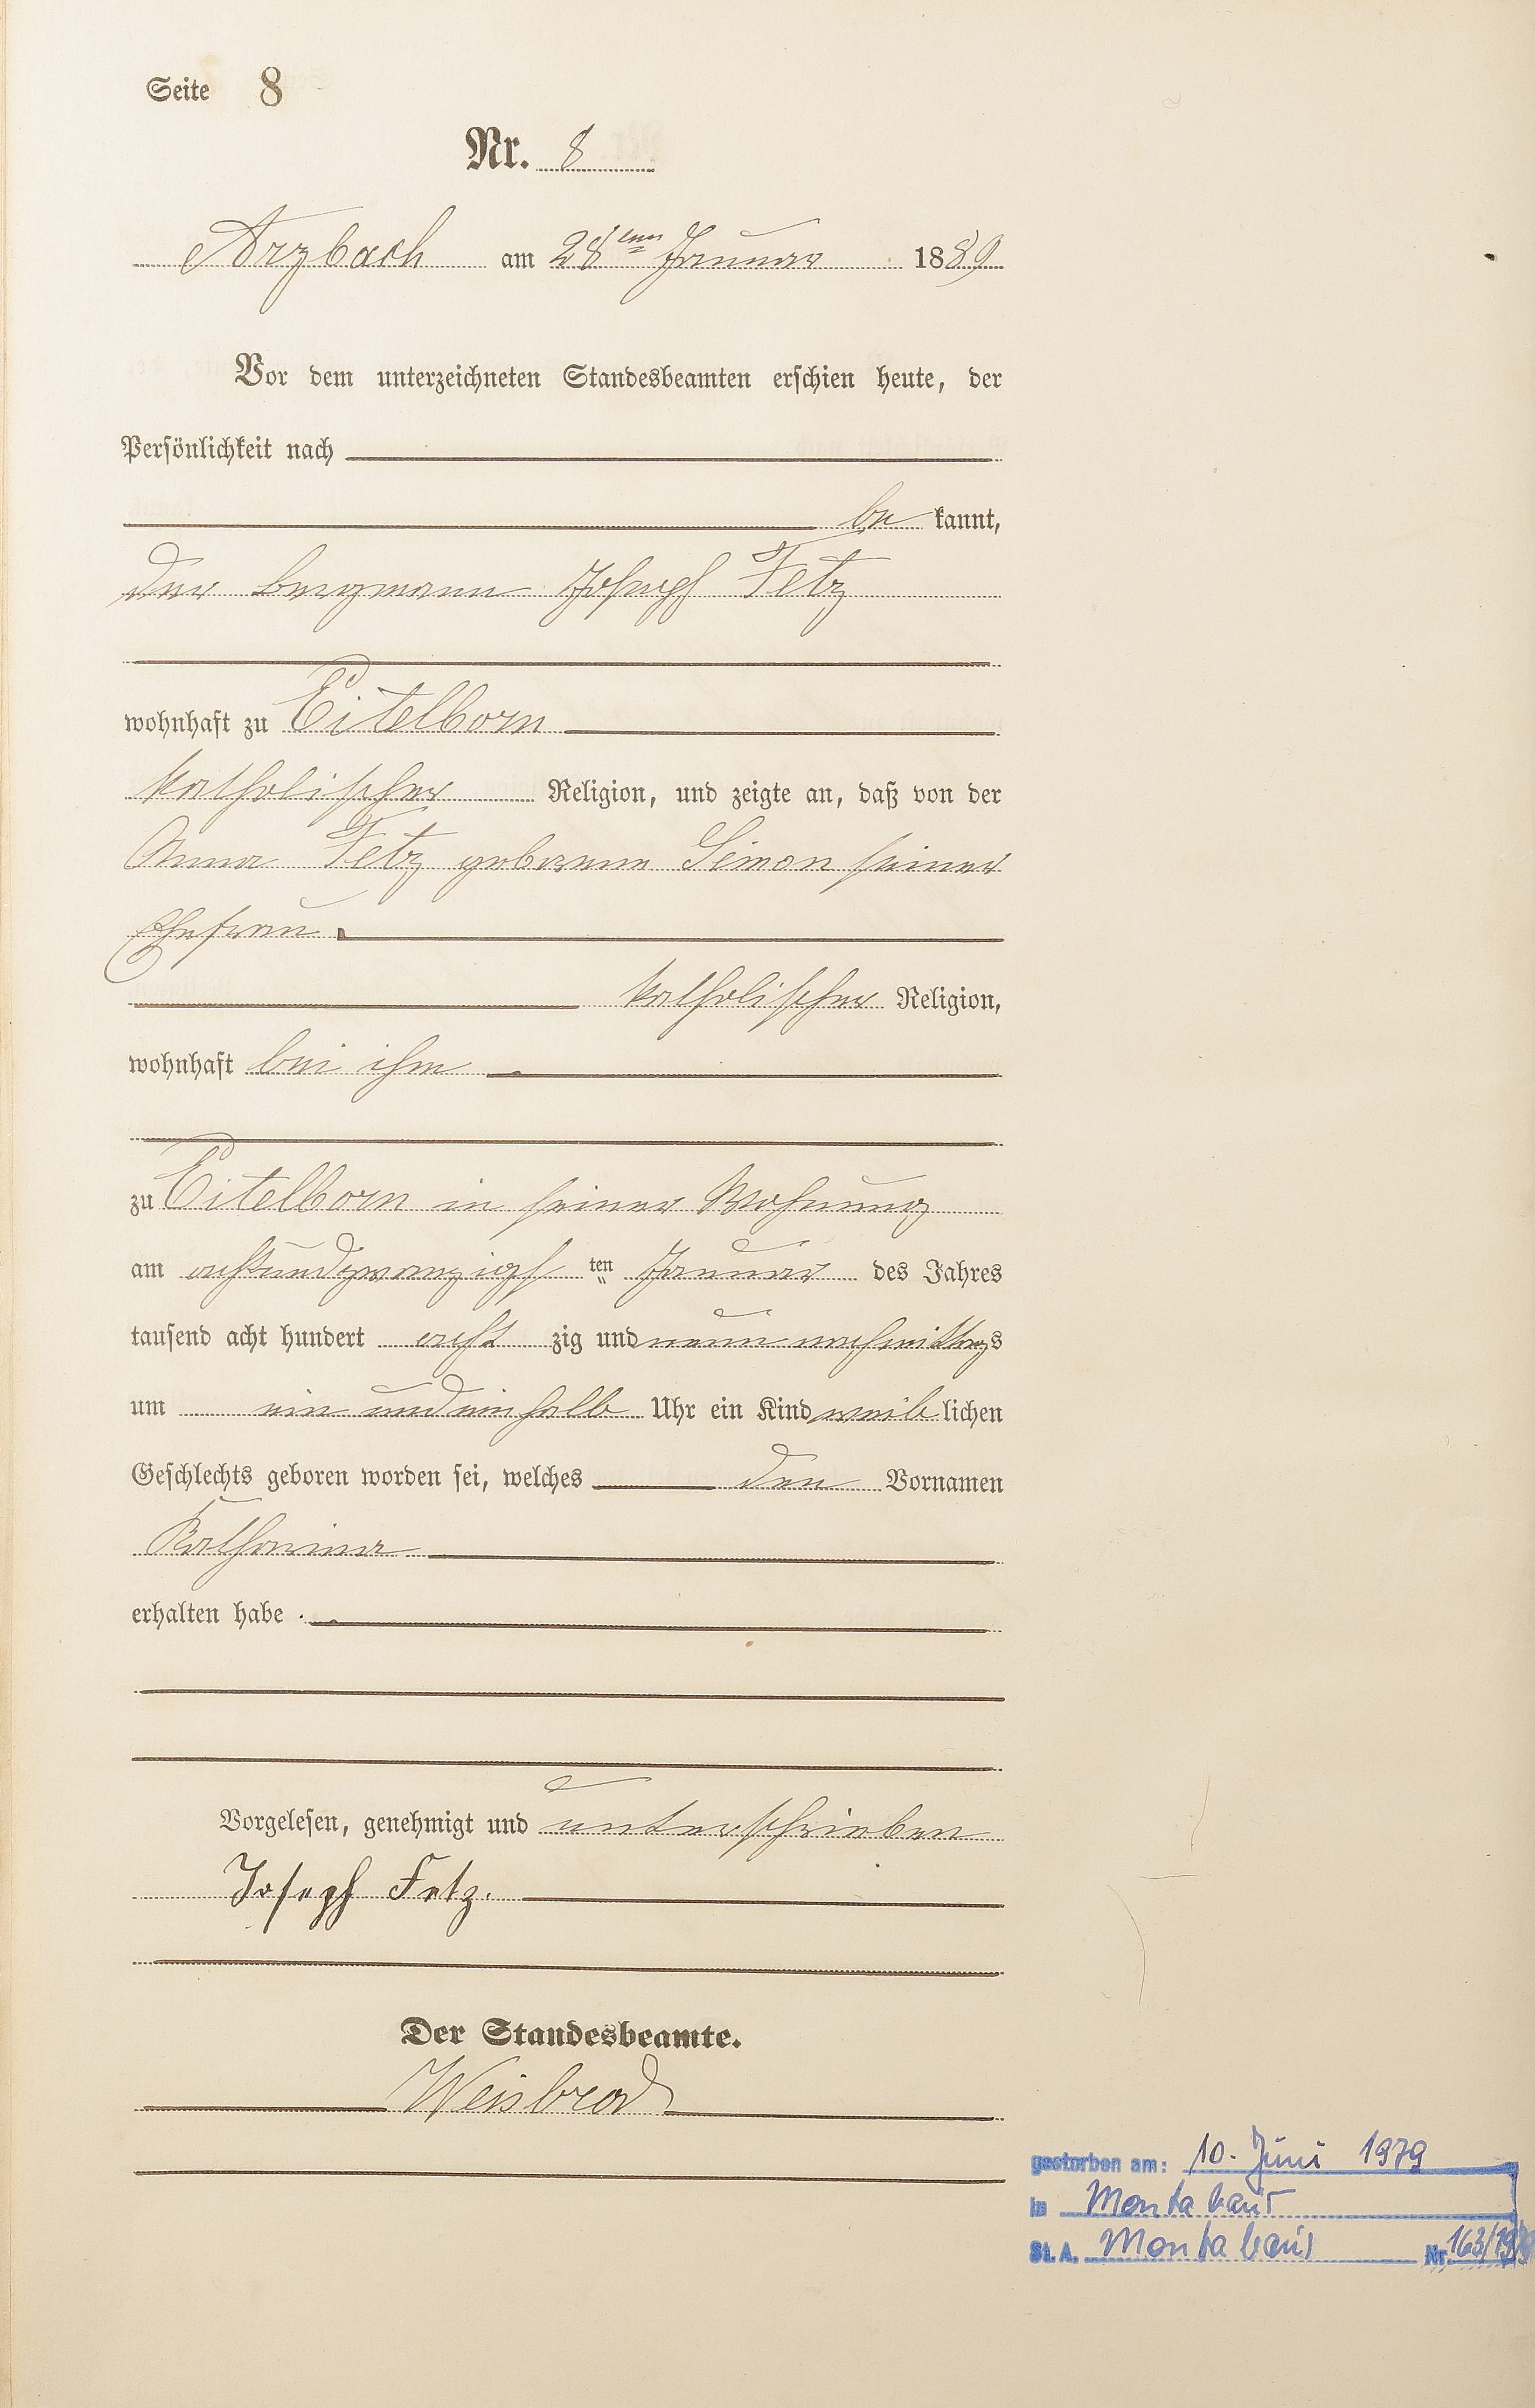 Seite 8
Nr. 8
Arzbach am 28ten Januar 1889
Vor dem unterzeichneten Standesbeamten erschien heute, der
Persönlichkeit nach
be kannt,
der Bergmann Joseph Fetz
wohnhaft zu Eitelborn
katholischer Religion, und zeigte an, daß von der
Anna Fetz geborene Simon seiner
Ehefrau
katholischer Religion,
wohnhaft bei ihm
zu Eitelborn in seiner Wohnung
am achtundzwanzigs ten Januar des Jahres
tausend acht hundert acht zig und neun nachmittags
um ein und ein halb Uhr ein Kind weib lichen
Geschlechts geboren worden sei, welches den Vornamen
Katharina
erhalten habe .
Vorgelesen, genehmigt und unterschrieben
Joseph Fetz.
Der Standesbeamte.
Weisbrod
gestorben am: 10. Juni 1979
in Montabaur
St. A. Montabaur Nr. 163/1979